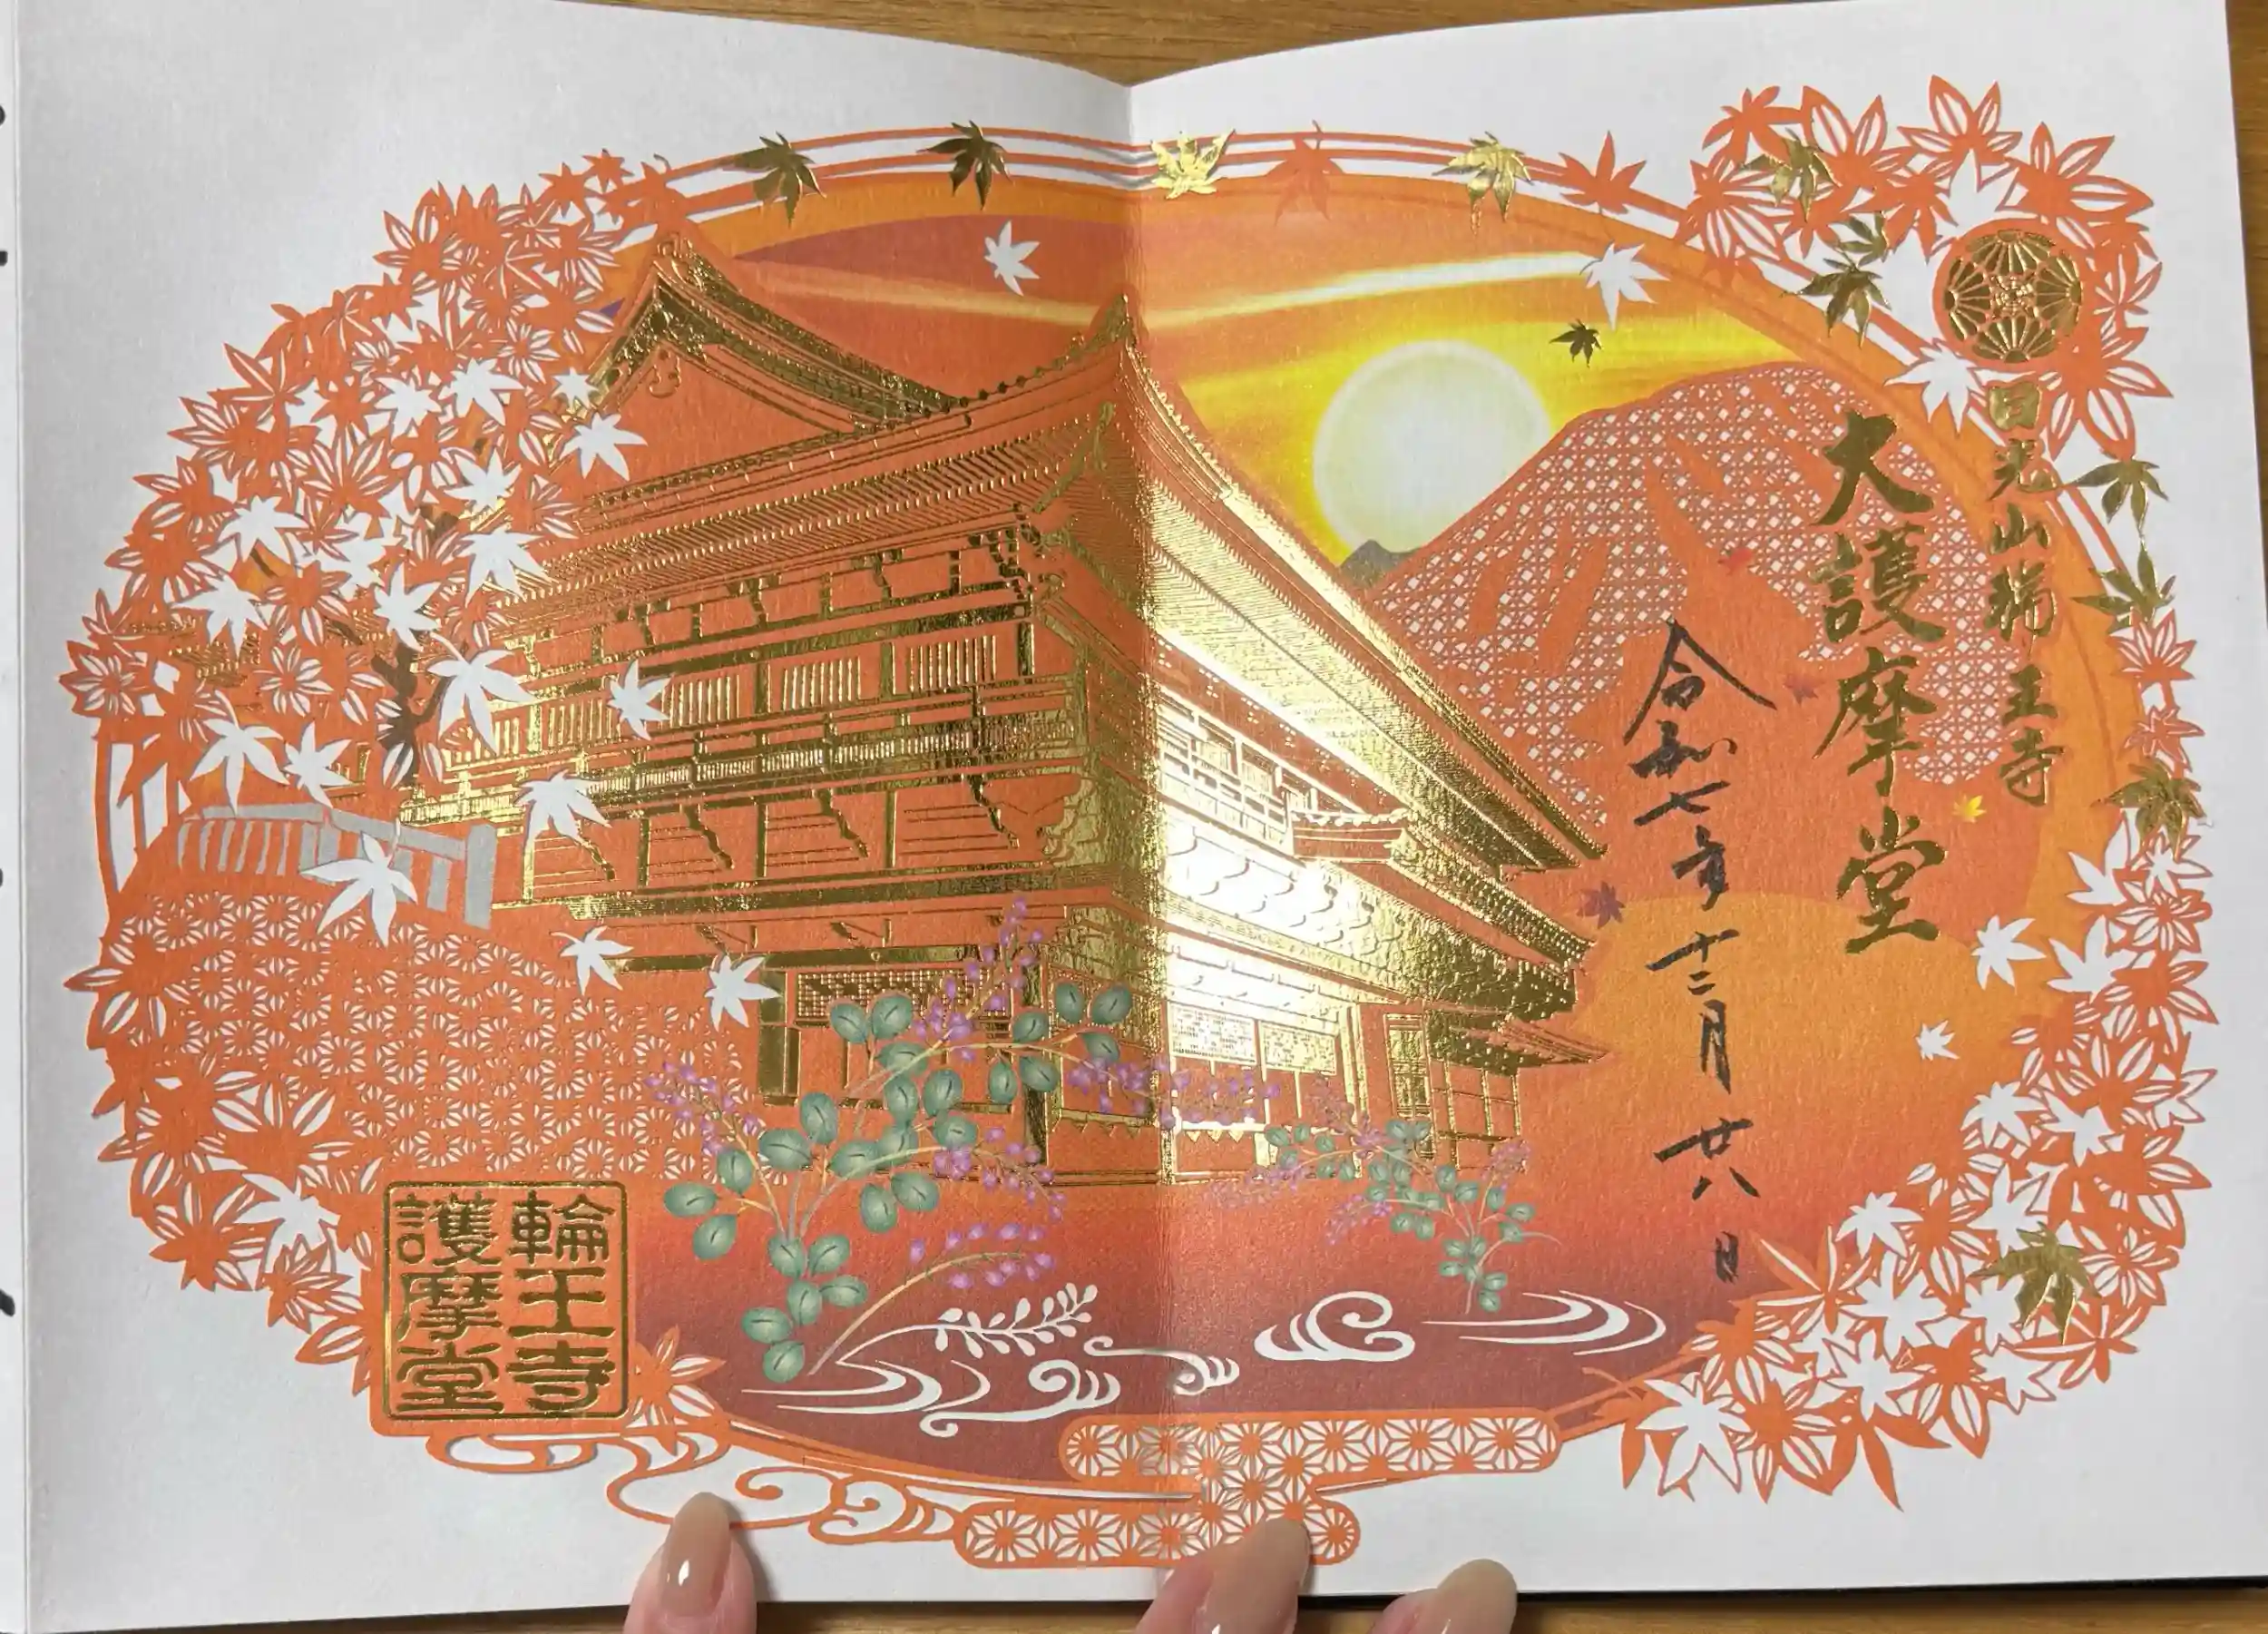 日光山輪王寺
大護摩堂
令和七年十二月廿八日
輪王寺
護摩堂